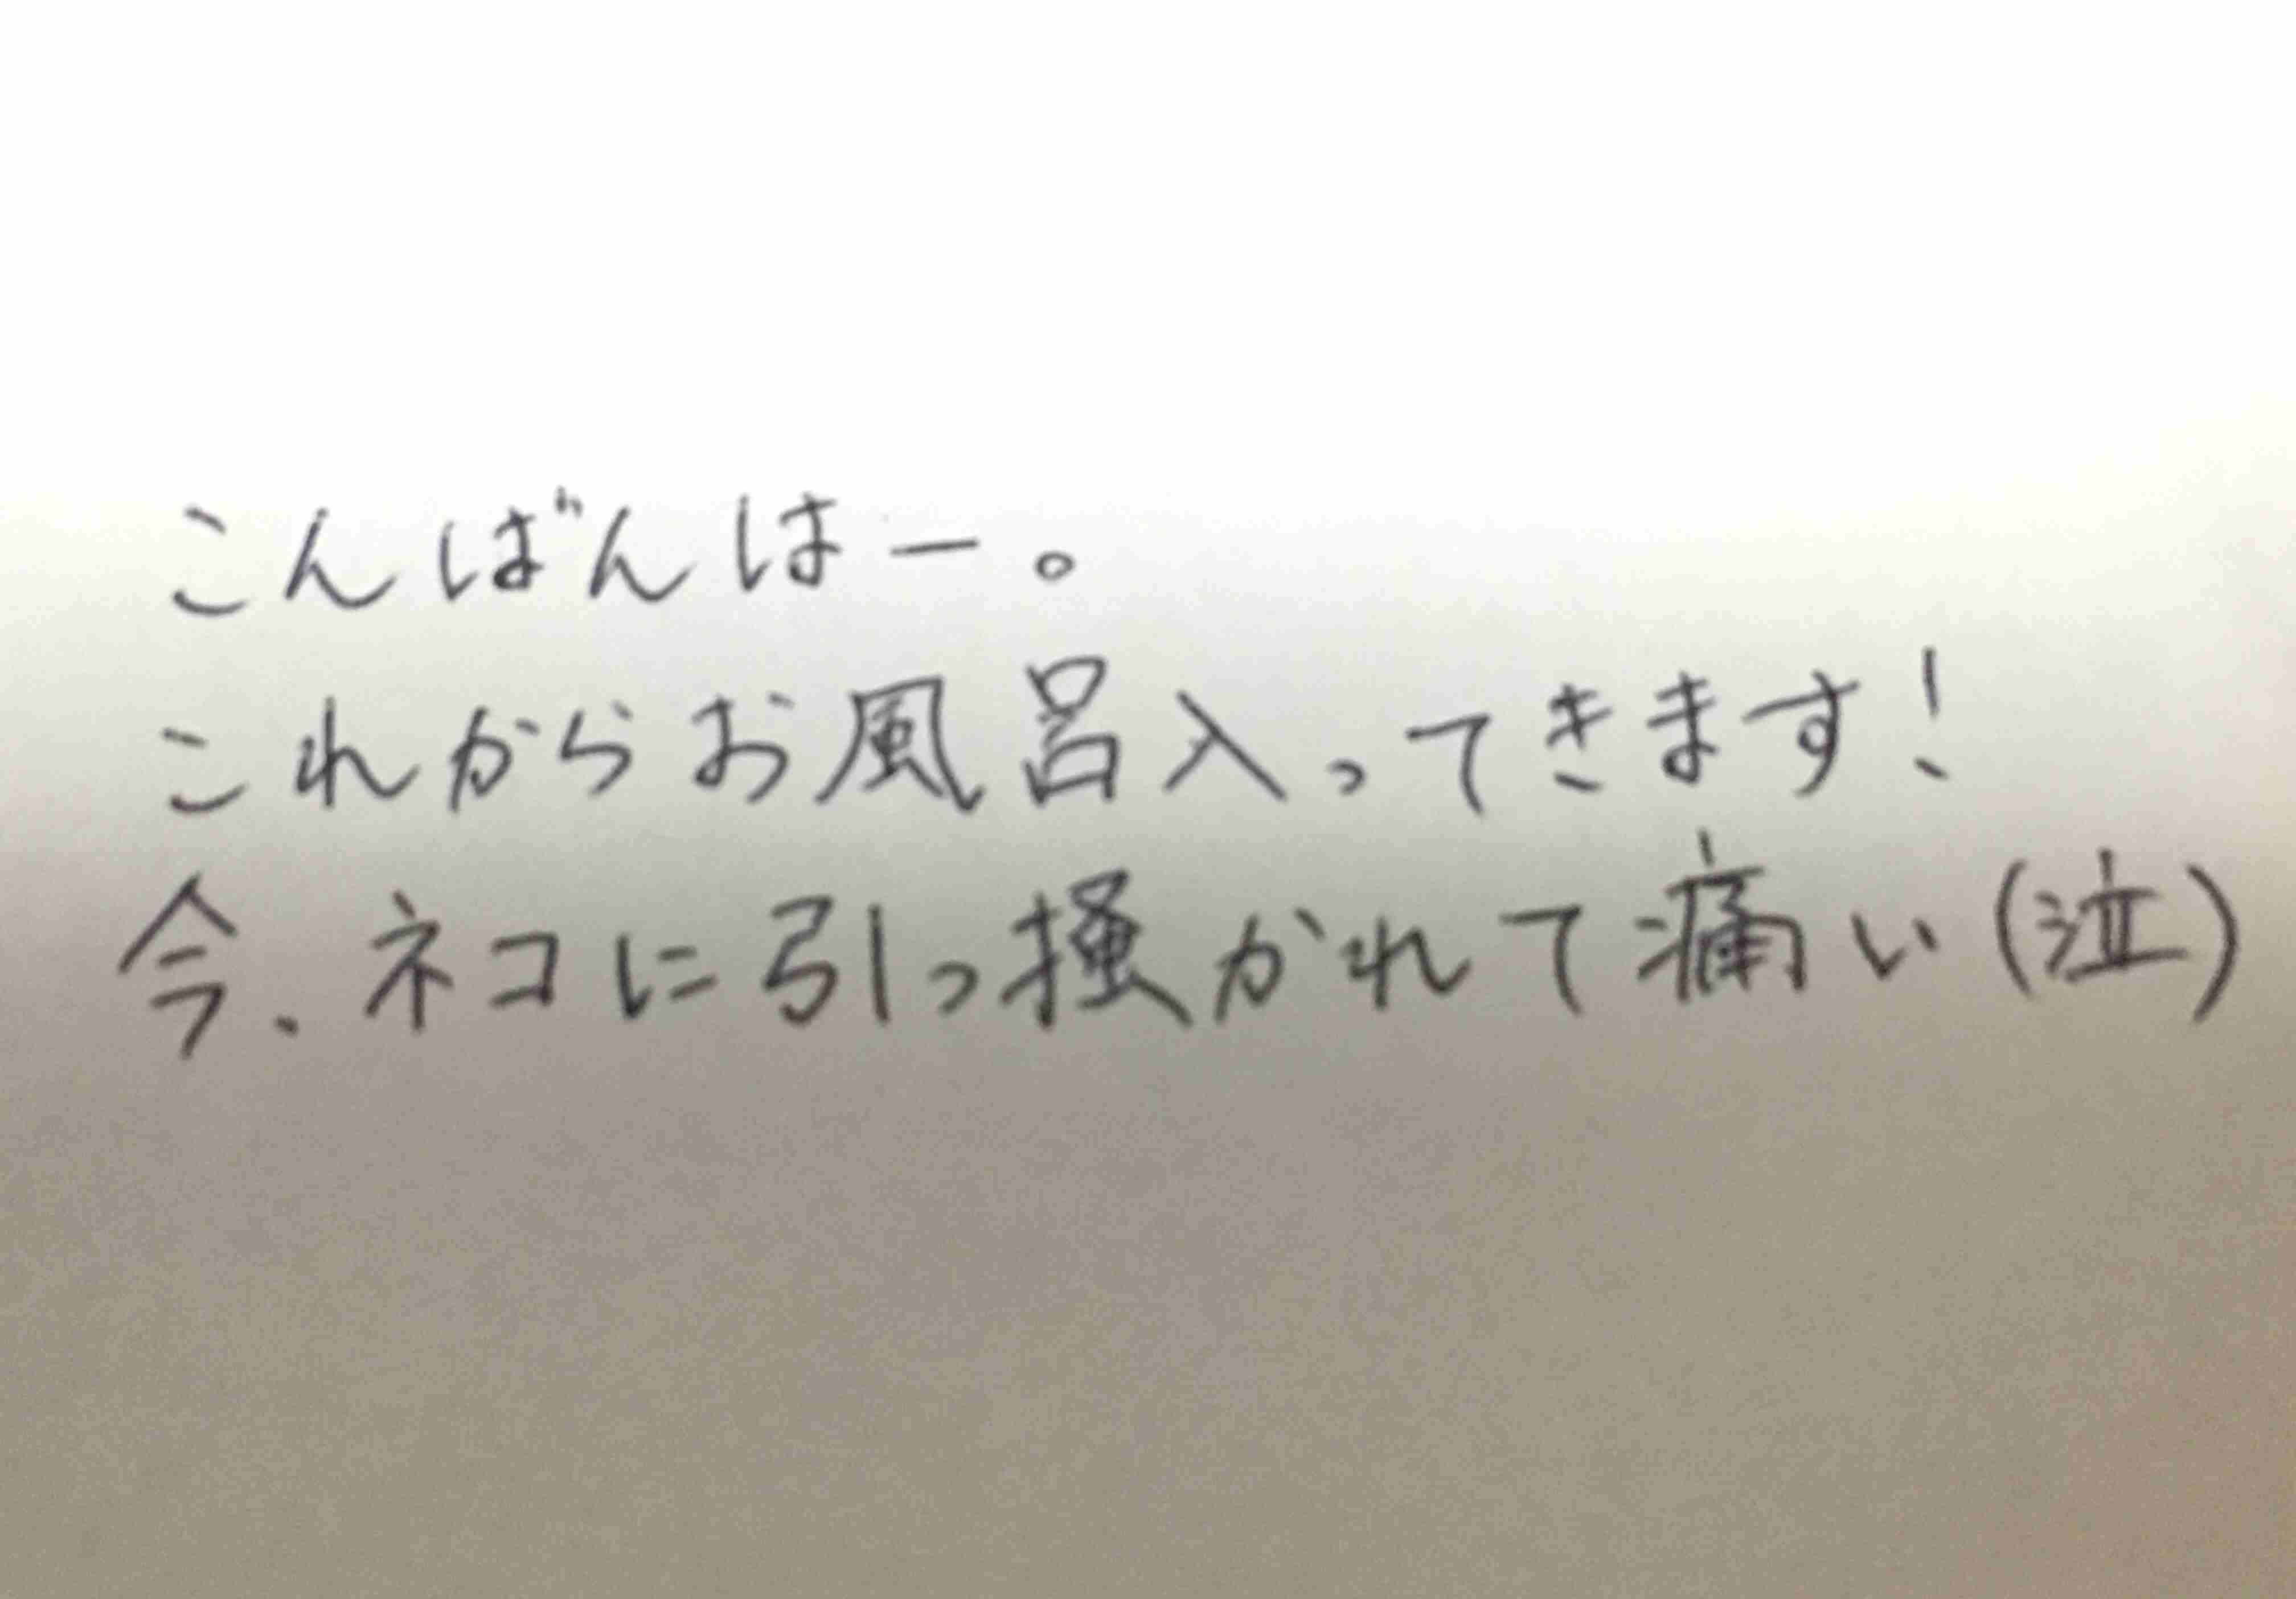 こんばんはー。
これからお風呂入ってきます!
今、ネコに引っ掻かれて痛い(泣)